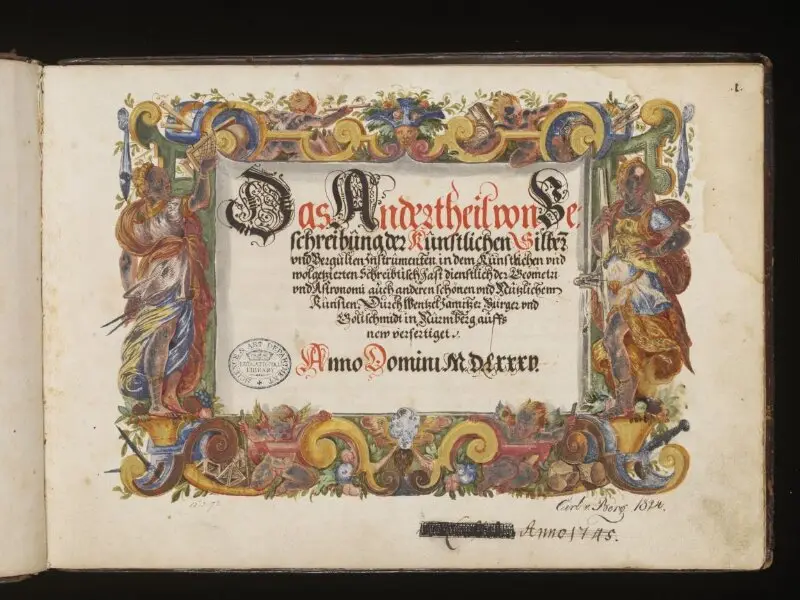 .1.
Das Andertheil von Be:
schreibung der Kunstlichen Silber
vnd Vergulten Instrumenten in dem Kunstlichen vnd
wolgezierten Schreibtisch fast dienstlich der Geometri
vnd Astronomi auch anderen schönen vnd Nützlichenn
Künsten. Durch Wentzel Jamitzer Burger vnd
Goltschmidt in Nürmberg auffs
new verfertiget.
Anno Domini M DLXXXV.
SCIENCE & ART DEPARTMENT
EDUCATIONAL
LIBRARY
Anno 1745.